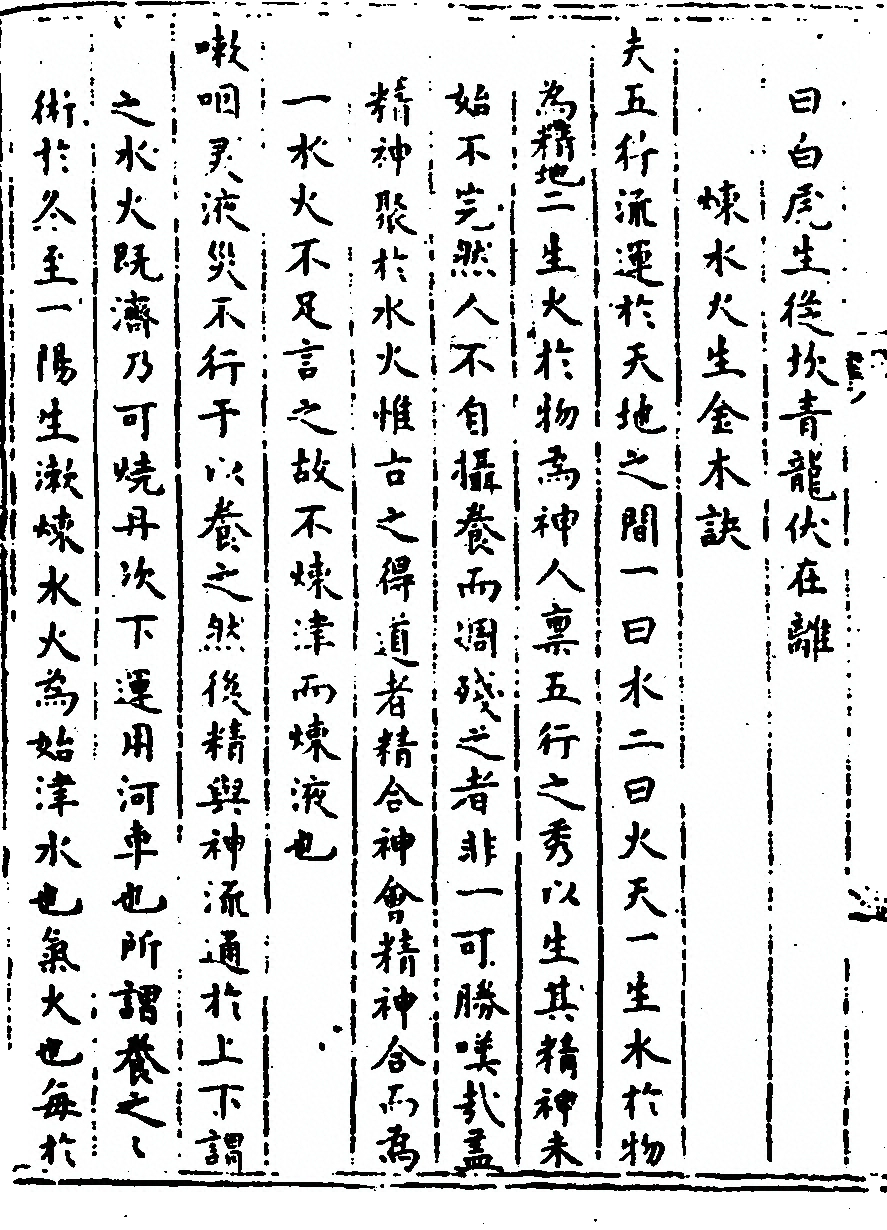 曰白虎生從坎青龍伏在離
煉水火生金木訣
夫五行流運於天地之間一曰水二曰火天一生水於物
為精地二生火於物為神人禀五行之秀以生其精神未
始不完然人不自攝養而凋殘之者非一可勝嘆哉盖
精神聚於水火惟古之得道者精合神會精神合而為
一水火不足言之故不煉津而煉液也
嗽咽灵液災不行于以養之然後精與神流通於上下謂
之水火既濟乃可燒丹次下運用河車也所謂養之〻
術於冬至一陽生漱煉水火為始津水也氣火也每於